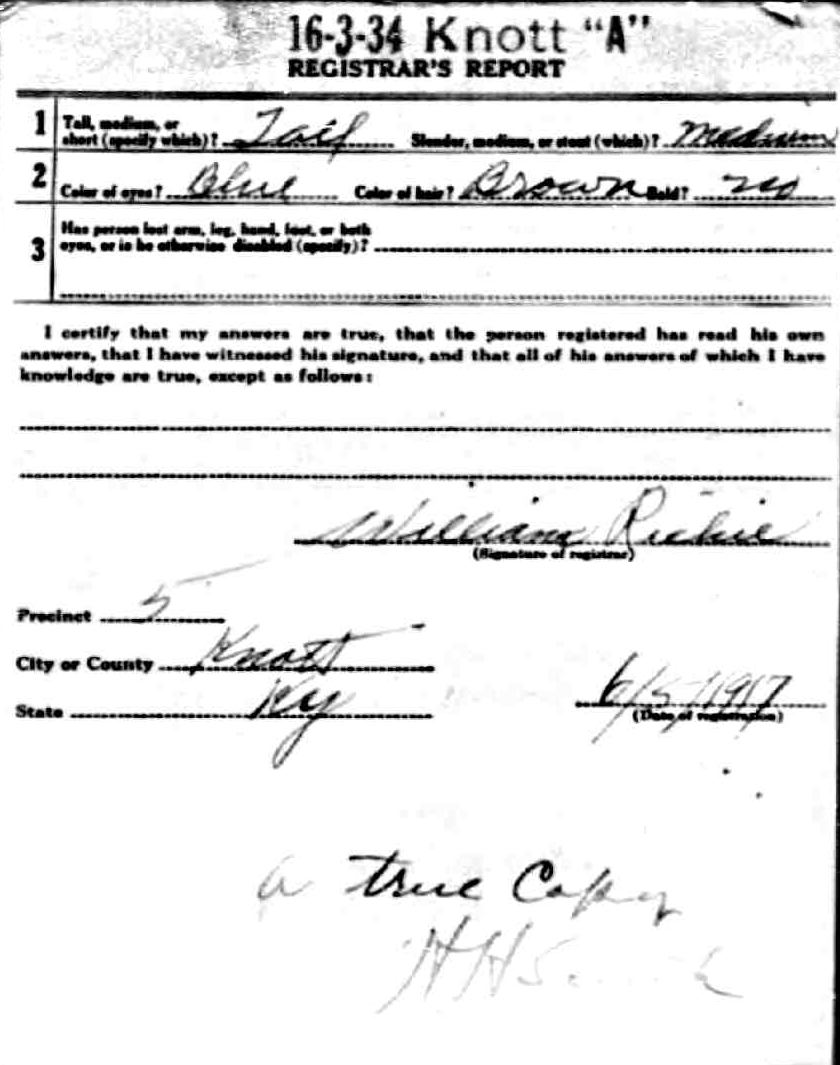 16-3-34 Knott "A"
REGISTRAR'S REPORT
1 Tall, medium, or short (specify which)? Tall Slender, medium, or stout (which)? Medium
2 Color of eyes? Blue Color of hair? Brown Bald? No
3 Has person lost arm, leg, hand, foot, or both eyes, or is he otherwise disabled (specify)?
I certify that my answers are true, that the person registered has read his own
answers, that I have witnessed his signature, and that all of his answers of which I have
knowledge are true, except as follows:
William Richie
(Signature of registrar)
Precinct 5
City or County Knott
State Ky 6/5/1917
(Date of registration)
a true Copy
H H